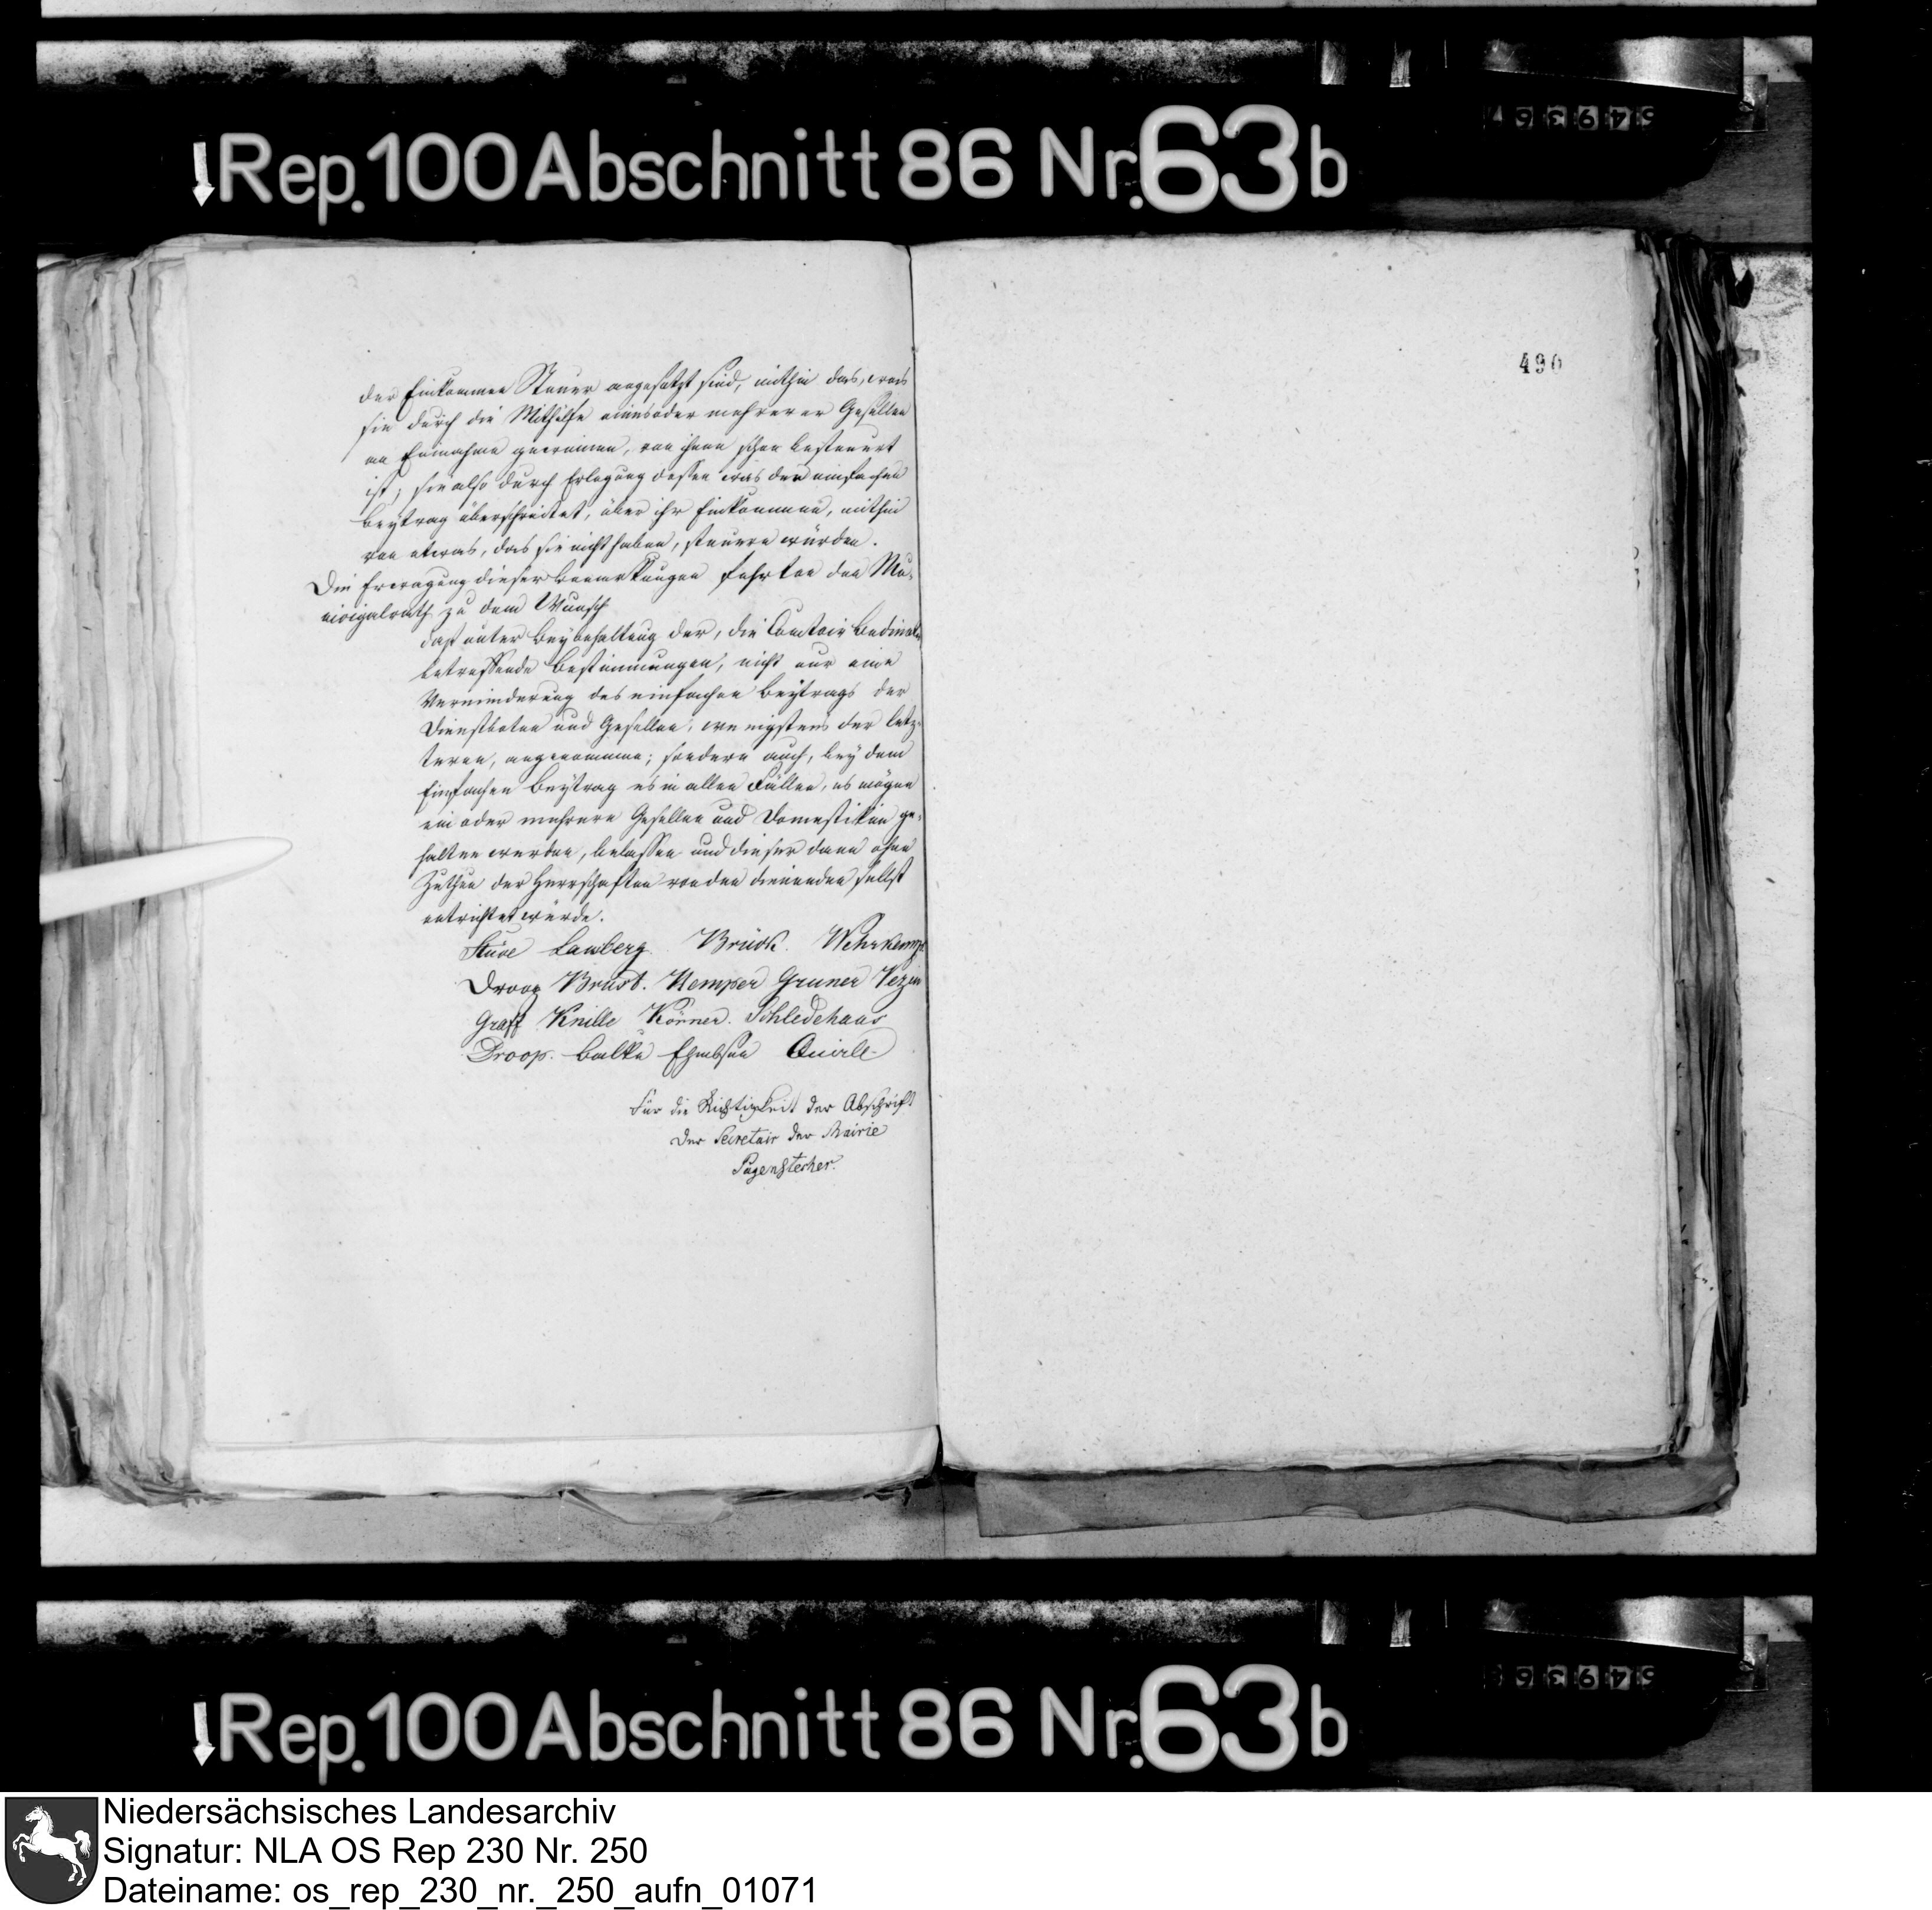 Rep. 100 Abschnitt 86 Nr. 63b
490
der Einkommen Steuer angesetzt sind, mithin das, was
sie durch die Mithülfe eines oder mehrerer Gesellen
an Einnahme gewinnen, von ihnen schon besteuert
ist; sie also durch Erlegung dessen was den einfachen
Beytrag überschreitet, über ihr Einkommen, mithin
von etwas, das sie nicht haben, steuern würden.
Die Erwägung dieser Bemerkungen führten den Mu-
nicipalrath zu dem Wunsch
daß unter Beybehaltung der, die Comtoir Bediente
betreffende Bestimmungen, nicht nur eine
Verminderung des einfachen Beytrags der
Dienstboten und Gesellen, wenigstens der letz-
teren, angenommen; sondern auch, bey dem
Einfachen Beytrag es in allen Fällen, es mögen
ein oder mehrere Gesellen und Domestiken ge-
halten werden, belassen und dieser dann ohne
Zuthun der Herrschaften von den dienenden selbst
entrichtet würde.
Stüve Lamberg. Brück. Wehrkamp
Droop Brust. Kemper Gruner Vezin
Graff Knille Körner. Schledehaus
Droop. Balke Ehmbsen Quirll
Für die Richtigkeit der Abschrift
Der Secretair der Mairie
Pagenstecher.
Rep. 100 Abschnitt 86 Nr. 63b
Niedersächsisches Landesarchiv
Signatur: NLA OS Rep 230 Nr. 250
Dateiname: os_rep_230_nr._250_aufn_01071